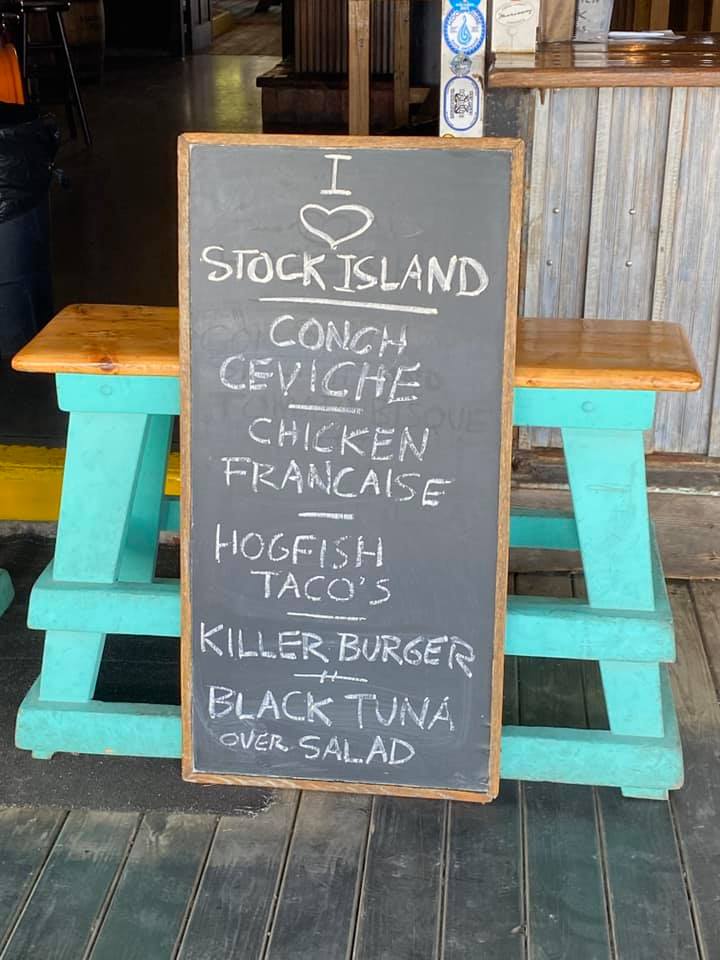 I
♡
STOCK ISLAND
CONCH
CEVICHE
CHICKEN
FRANCAISE
HOGFISH
TACO'S
KILLER BURGER
BLACK TUNA
OVER SALAD